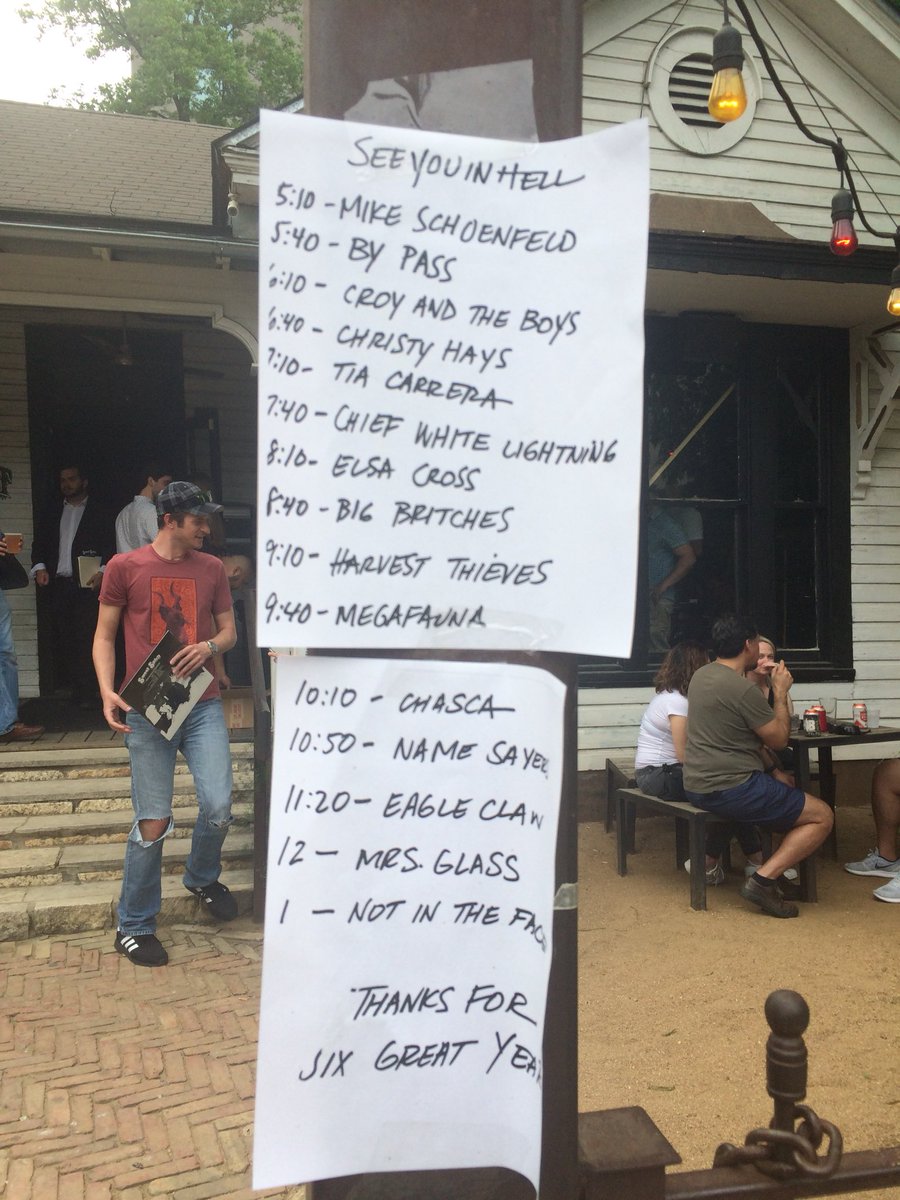 SEE YOU IN HELL
5:10 - MIKE SCHOENFELD
5:40 - BY PASS
6:10 - CROY AND THE BOYS
6:40 - CHRISTY HAYS
7:10 - TIA CARRERA
7:40 - CHIEF WHITE LIGHTNING
8:10 - ELSA CROSS
8:40 - BIG BRITCHES
9:10 - HARVEST THIEVES
9:40 - MEGAFAUNA
10:10 - CHASCA
10:50 - NAME SAYER
11:20 - EAGLE CLAW
12 - MRS. GLASS
1 - NOT IN THE FACE
THANKS FOR
SIX GREAT YEA